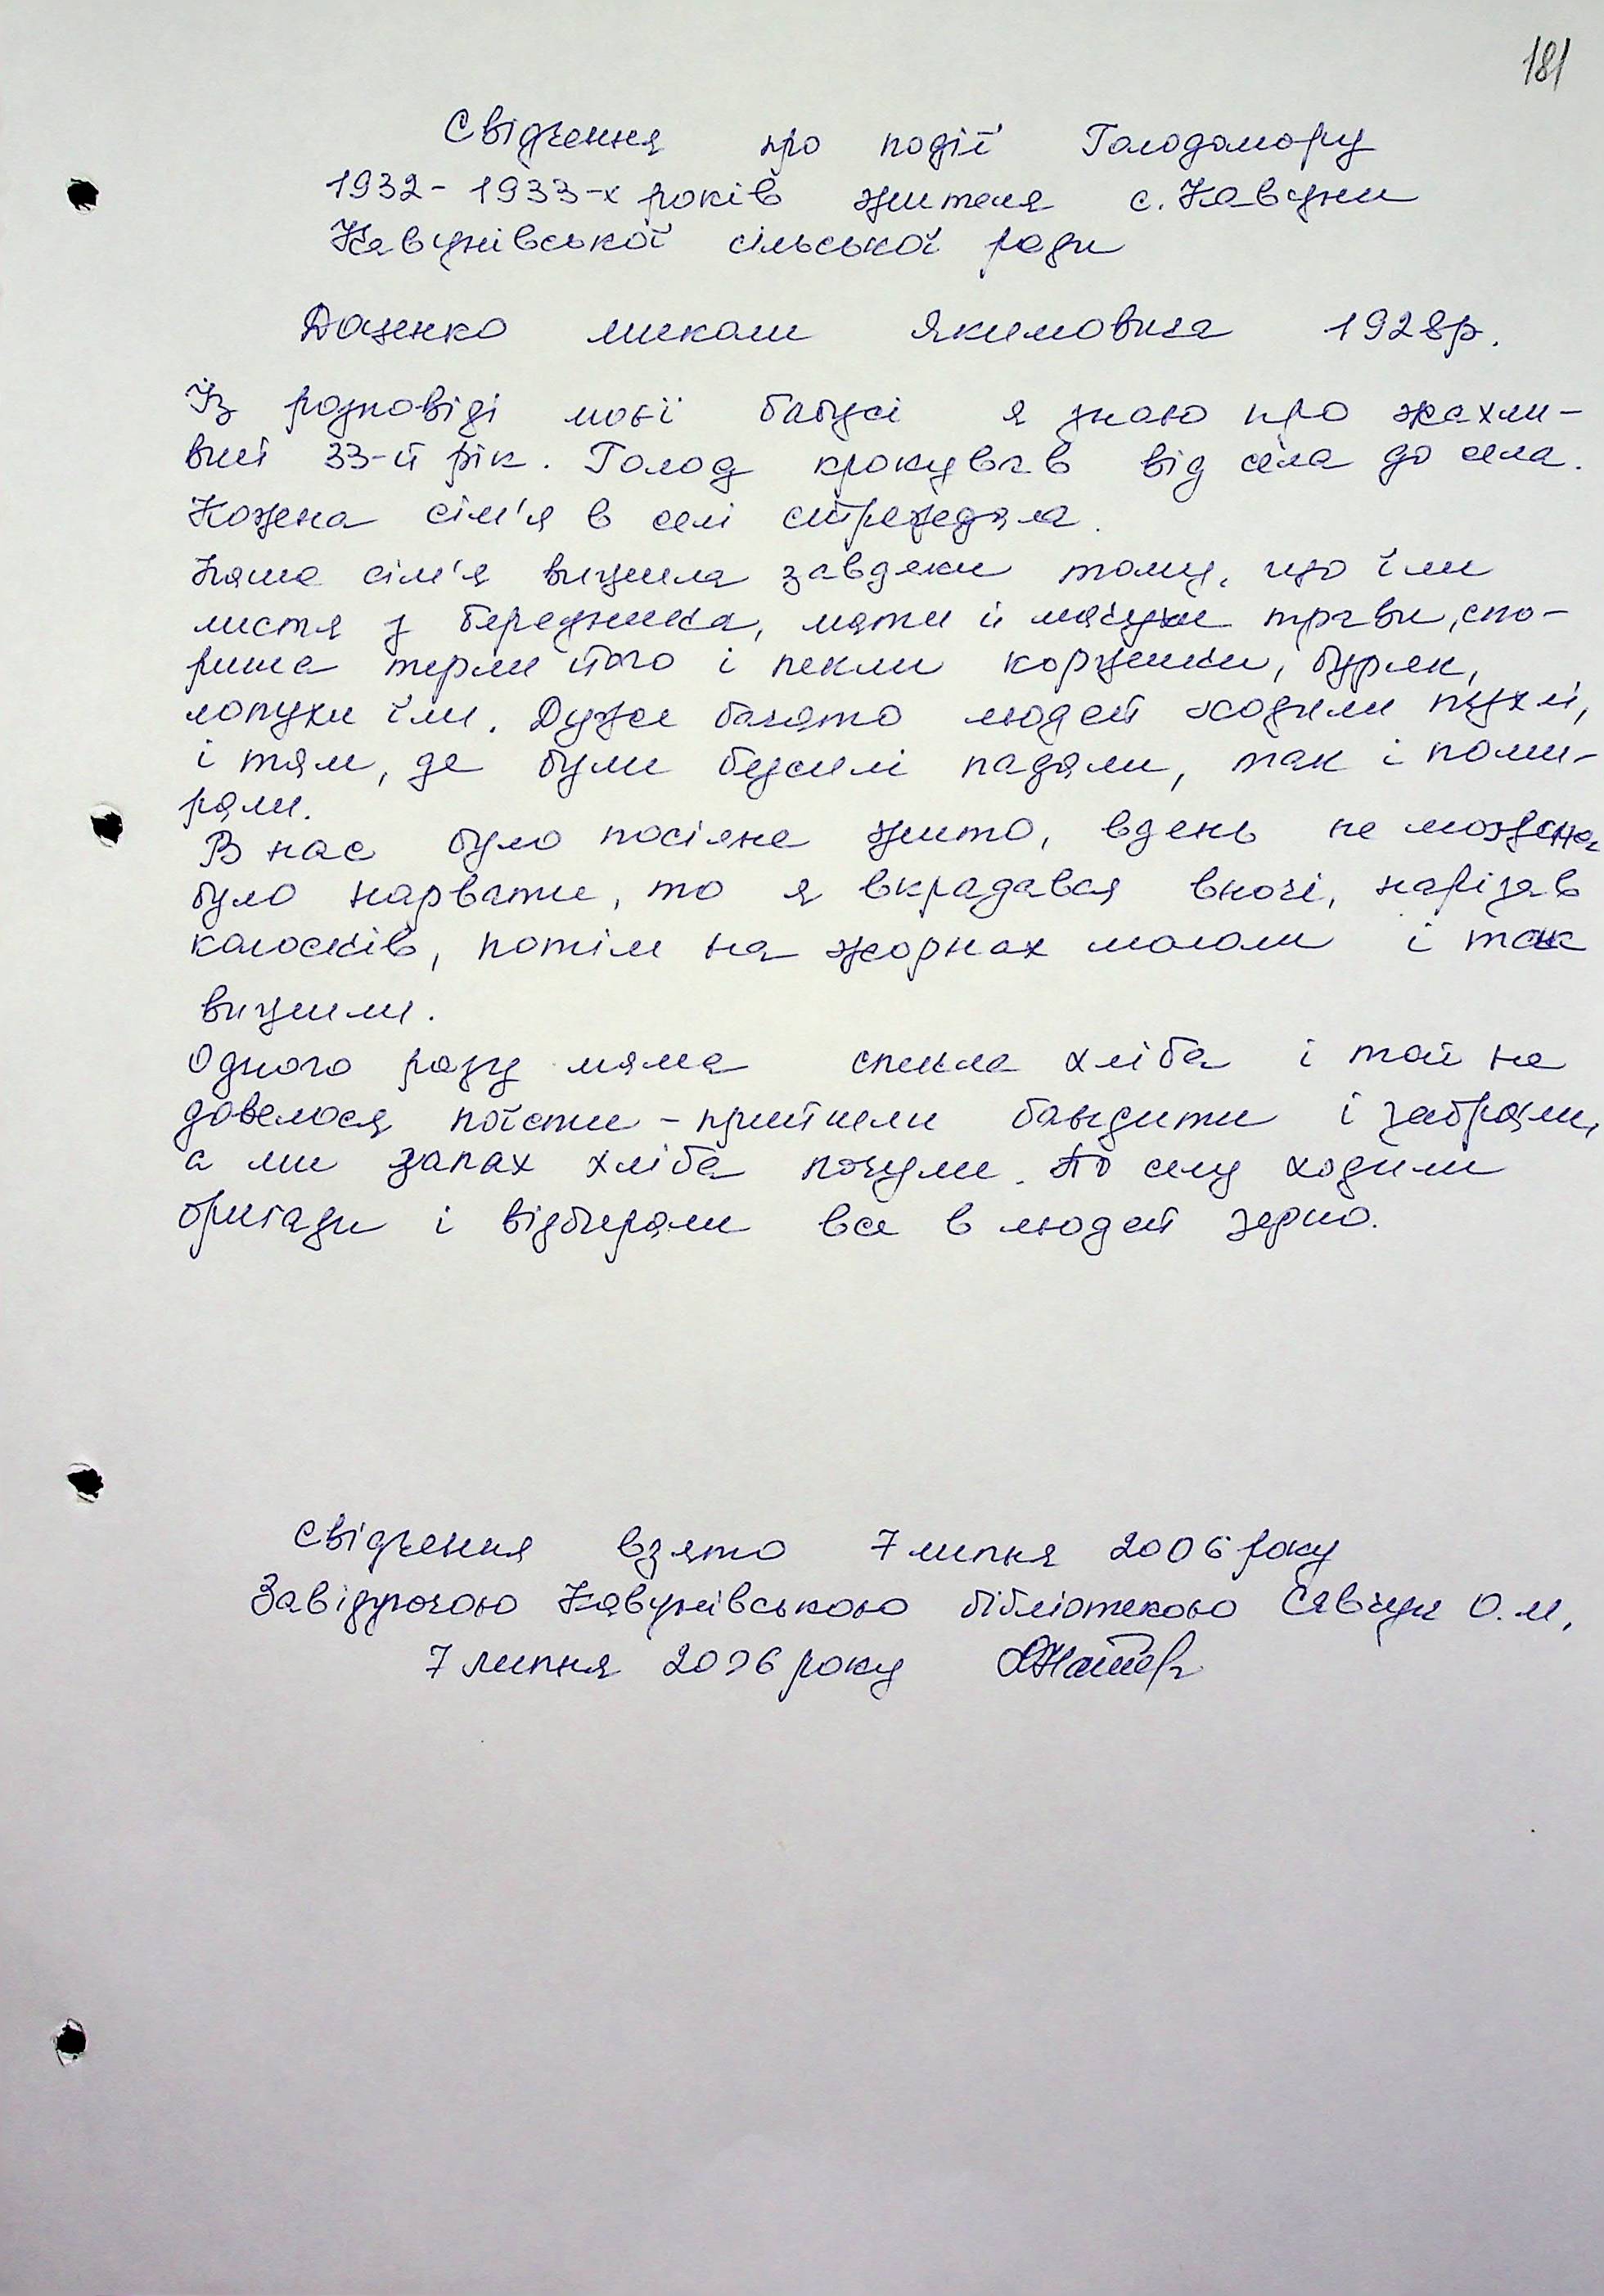 181
Свідчення про події Голодомору
1932-1933-х років жителя с. Кавуни
Кавунівської сільської ради
Доценко миколи Якимовича 1928р.
Із розповіді моєї бабусі я знаю про жахли-
вий 33-й рік. Голод крокував від села до села.
Кожена сім'я в селі страждала.
Наша сім'я вижила завдяки тому, що їли
листя з березника, мати й мачухи трави, спо-
риша терли його і пекли коржики, буряк,
лопухи їли. Дуже багато людей ходили пухлі,
і там, де були безсилі падали, так і поми-
рали.
В нас було посіяне жито, вдень не можена
було нарвати, то я вкрадався вночі, нарізав
колосків, потім на жорнах мололи і так
вижили.
Одного разу мама спекла хліба і той не
довелося поїсти - прийшли бандити і забрали,
а ми запах хліба почули. По селу ходили
бригади і відбирали все в людей зерно.
Свідчення взято 7 липня 2006 року
Завідуючою Кавунівською бібліотекою Савчук О.М.
7 липня 2006 року